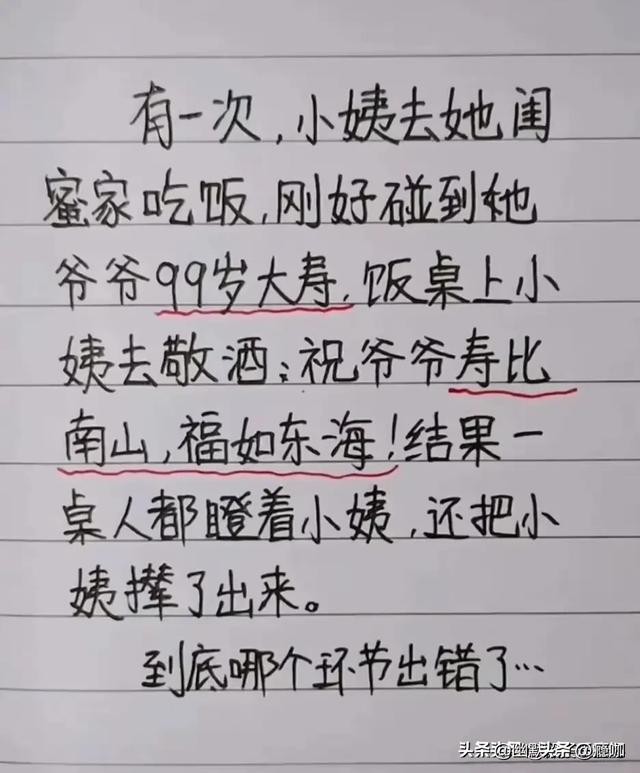 有一次,小姨去她闺
蜜家吃饭,刚好碰到她
爷爷99岁大寿,饭桌上小
姨去敬酒:祝爷爷寿比
南山,福如东海!结果一
桌人都瞪着小姨,还把小
姨撵了出来。
到底哪个环节出错了…
头条 头条@